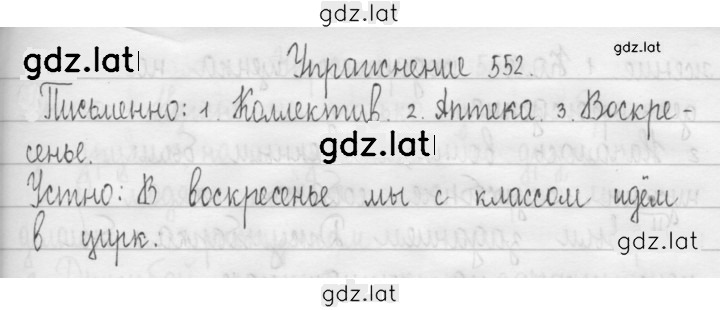 gdz.lat
gdz.lat Упражнение 552. gdz.lat
Письменно: 1. Коллектив. 2. Аптека 3. Воскре-
сенье. gdz.lat
Устно: В воскресенье мы с классом идём
в цирк. gdz.lat
gdz.lat